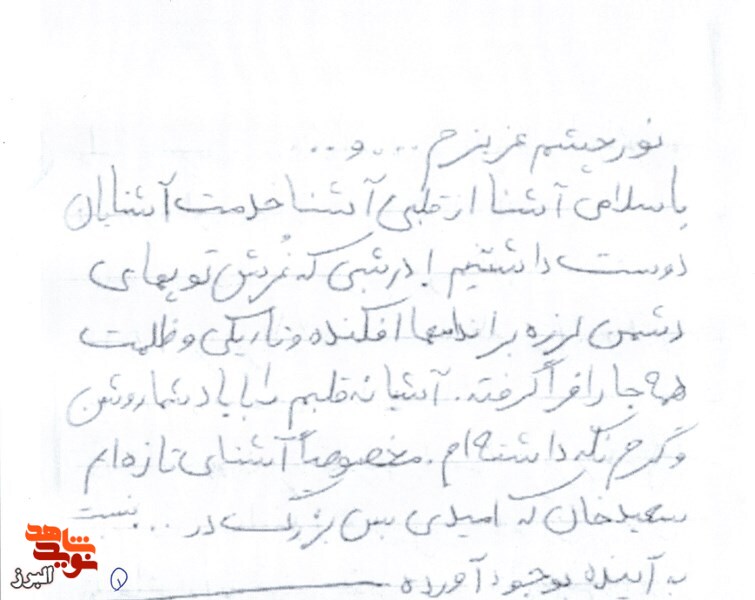 نور چشم عزیزم ... و ...
با سلامی آشنا از قلبی آشنا خدمت آشنایان
دوست داشتنیم! در شبی که غُرش توپهای
دشمن لرزه بر اندامها افکنده و تاریکی و ظلمت
همه جا را فرا گرفته. آشیانه قلبم را با یاد شما روشن
و گرم نگه داشته‌ام. مخصوصاً آشنای تازه‌ام
سعیدخان که امیدی بس بزرگ در ... نسبت
به آینده بوجود آورده
نوید شاهد
البرز
۱